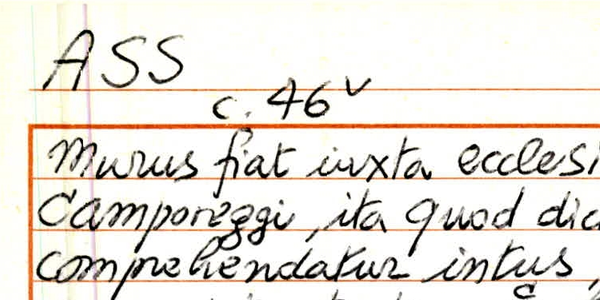 ASS
c. 46v
Murus fiat iuxta ecclesi
Camporeggi, ita quod dic
comprehendatur intus,